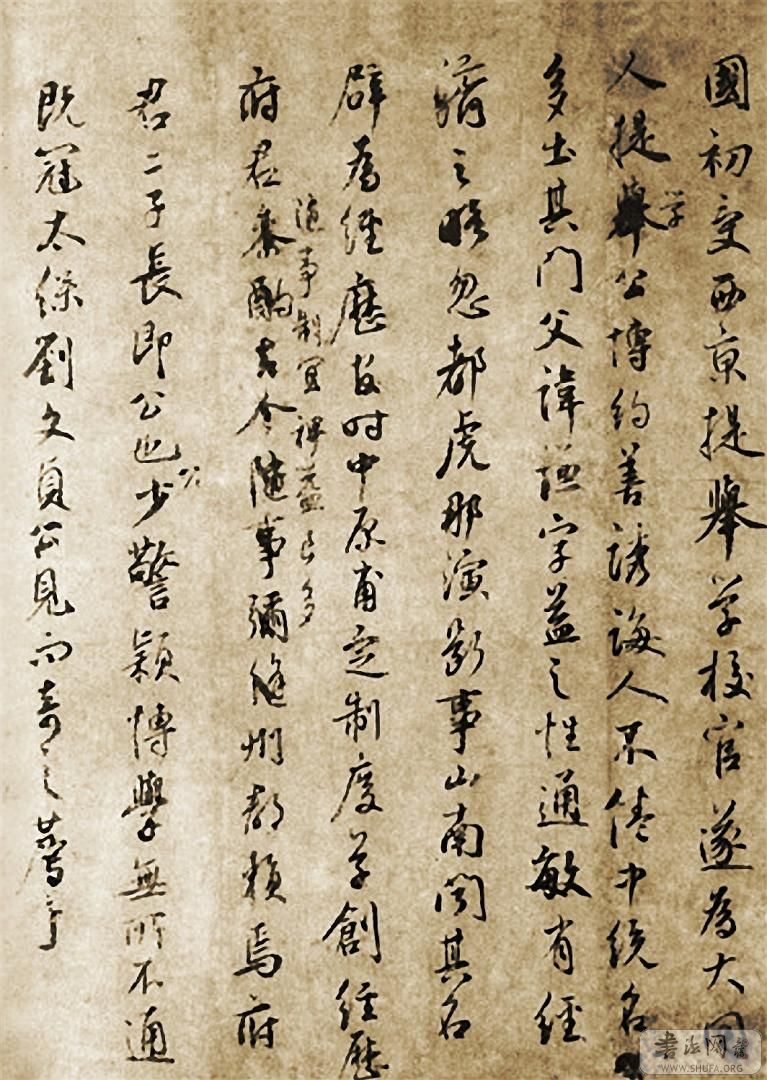 國初受西京提舉学校官遂為大同
人提舉学公博約善誘誨人不倦中統名
多出其門父諱謐字益之性通敏有經
濟之略忽都虎那演斷事山南聞其名
辟為經歷官时中原甫定制度草創經歷
府君叅酌古今隨事彌縫州郡賴焉府
隨事制宜裨益良多
君二子長即公也少公警穎博學無所不通
既冠太保劉文貞公見而奇之薦于
書法网
WWW.SHUFA.ORG